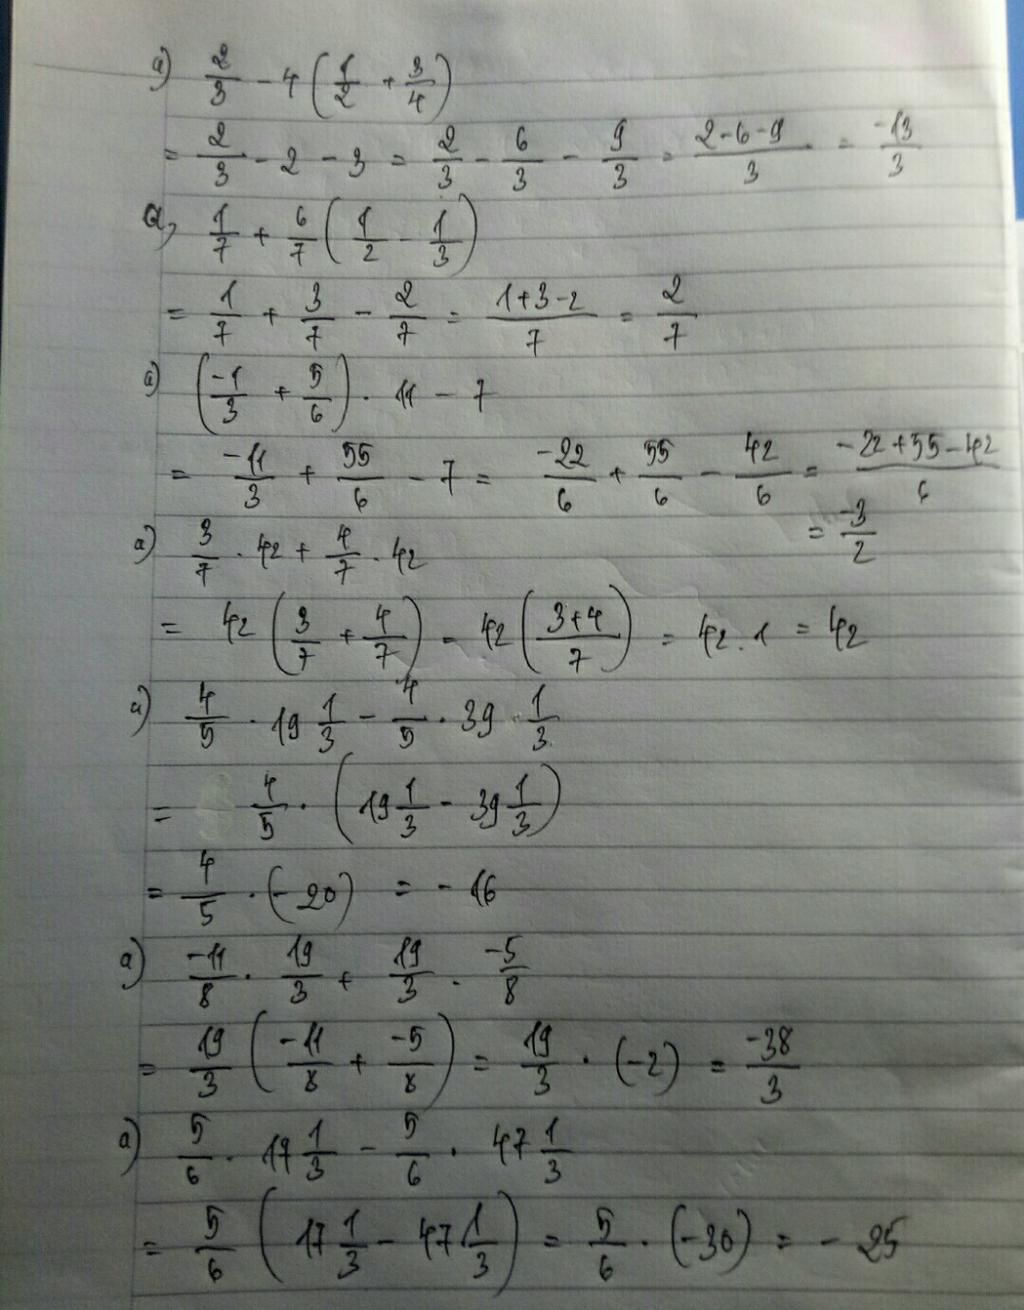 a) 2/3 - 4 (1/2 + 3/4)
= 2/3 - 2 - 3 = 2/3 - 6/3 - 9/3 = (2-6-9)/3 = -13/3
a) 1/7 + 6/7 (1/2 - 1/3)
= 1/7 + 3/7 - 2/7 = (1+3-2)/7 = 2/7
a) (-1/3 + 5/6) . 11 - 7
= -11/3 + 55/6 - 7 = -22/6 + 55/6 - 42/6 = (-22+55-42)/6
= -3/2
a) 3/7 . 42 + 4/7 . 42
= 42 (3/7 + 4/7) = 42 ((3+4)/7) = 42 . 1 = 42
a) 4/5 . 19 1/3 - 4/5 . 39 1/3
= 4/5 . (19 1/3 - 39 1/3)
= 4/5 . (-20) = - 16
a) -11/8 . 19/3 + 19/3 . -5/8
= 19/3 (-11/8 + -5/8) = 19/3 . (-2) = -38/3
a) 5/6 . 17 1/3 - 5/6 . 47 1/3
= 5/6 (17 1/3 - 47 1/3) = 5/6 . (-30) = - 25